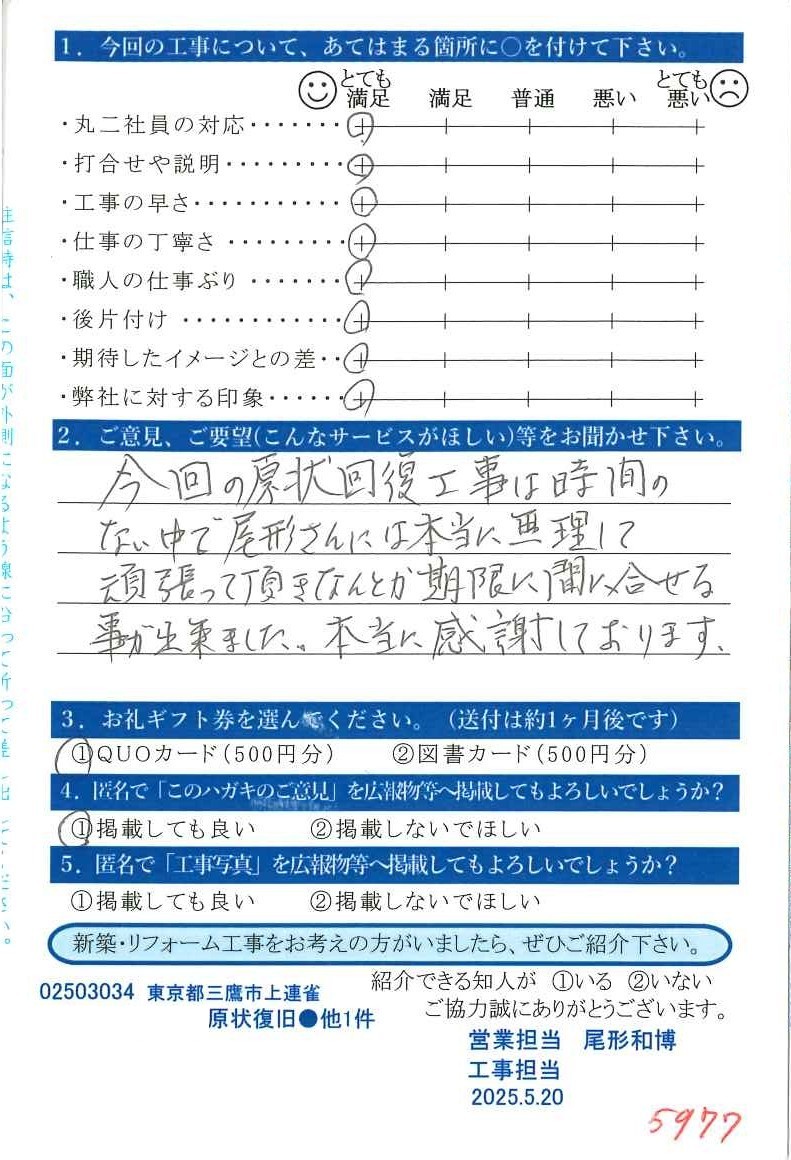 1．今回の工事について、あてはまる箇所に○を付けて下さい。
とても満足 満足 普通 悪い とても悪い
・丸二社員の対応・・・・・・・
・打合せや説明・・・・・・・・・
・工事の早さ・・・・・・・・・・・
・仕事の丁寧さ ・・・・・・・・・
・職人の仕事ぶり ・・・・・・・
・後片付け ・・・・・・・・・・・・
・期待したイメージとの差・・
・弊社に対する印象・・・・・・
2．ご意見、ご要望(こんなサービスがほしい)等をお聞かせ下さい。
今回の原状回復工事は時間の
ない中で尾形さんには本当に無理して
頑張って頂きなんとか期限に間に合せる
事が出来ました。本当に感謝しております。
3．お礼ギフト券を選んでください。（送付は約1ヶ月後です）
①QUOカード(500円分) ②図書カード(500円分)
4．匿名で「このハガキのご意見」を広報物等へ掲載してもよろしいでしょうか？
①掲載しても良い ②掲載しないでほしい
5．匿名で「工事写真」を広報物等へ掲載してもよろしいでしょうか？
①掲載しても良い ②掲載しないでほしい
新築・リフォーム工事をお考えの方がいましたら、ぜひご紹介下さい。
紹介できる知人が ①いる ②いない
ご協力誠にありがとうございます。
02503034 東京都三鷹市上連雀
原状復旧●他1件
営業担当 尾形和博
工事担当
2025.5.20
5977